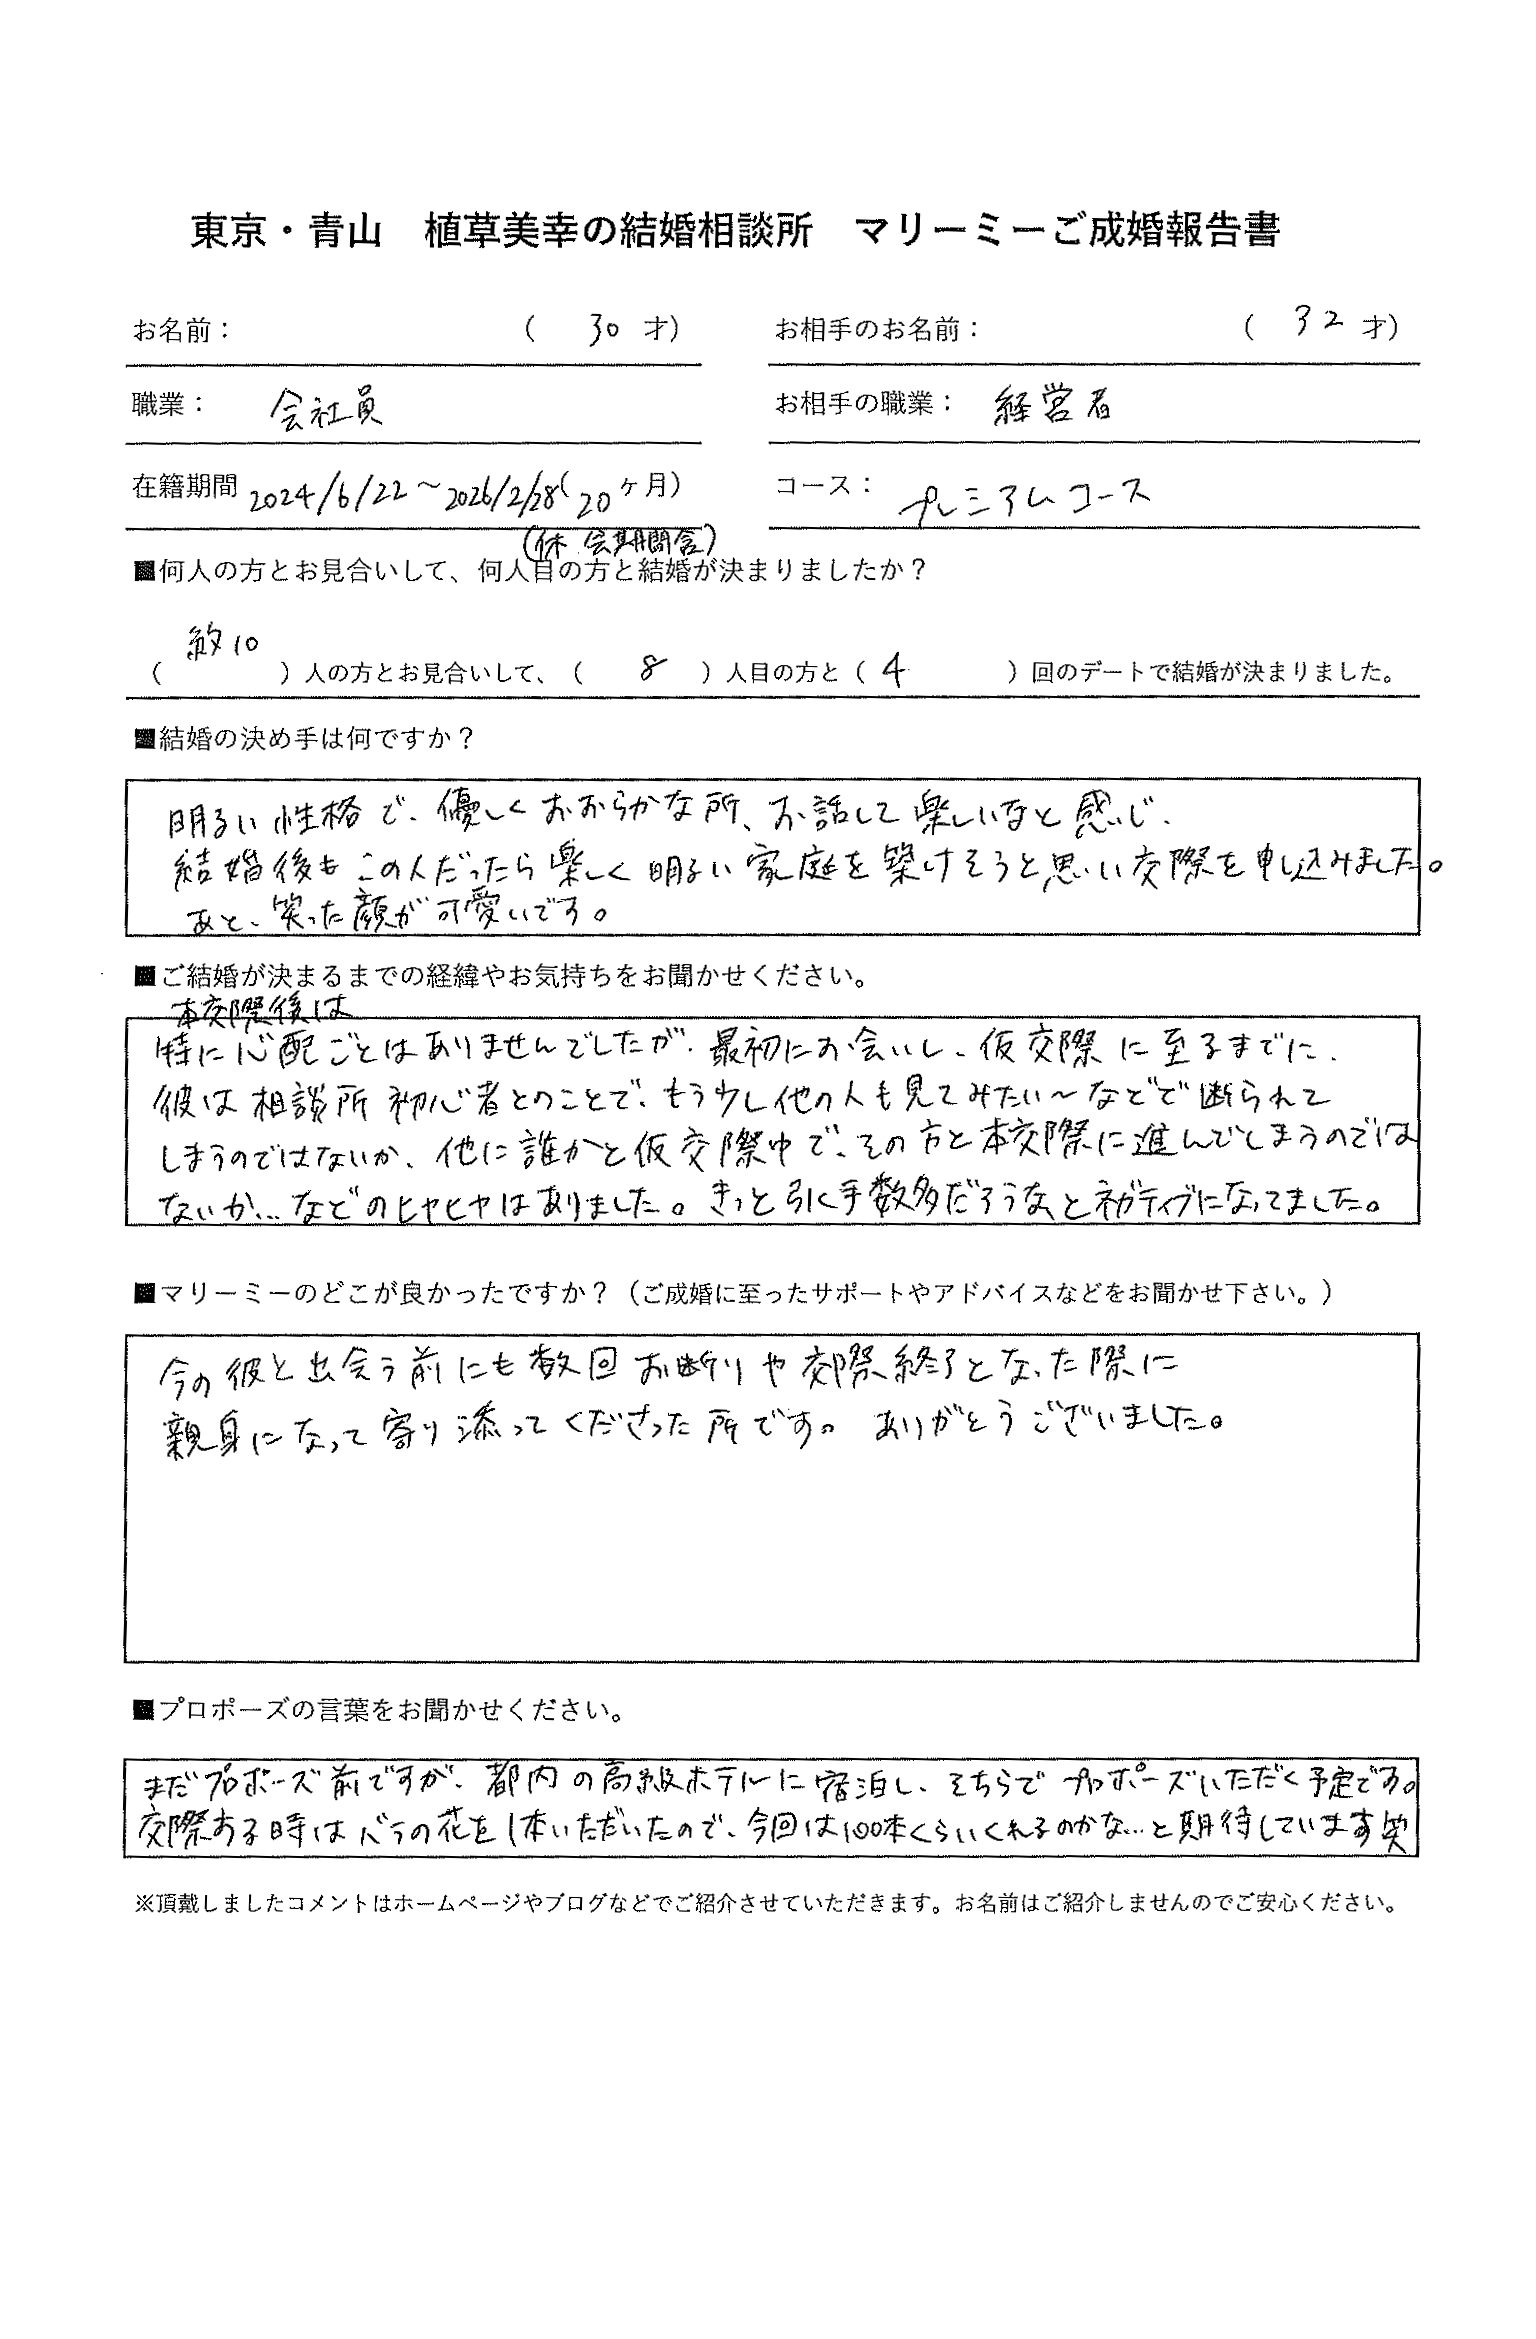 東京・青山　植草美幸の結婚相談所　マリーミーご成婚報告書
お名前：　（　30　才）　お相手のお名前：　（　32　才）
職業：　会社員　お相手の職業：　経営者
在籍期間　2024/6/22～2026/2/28（20ヶ月）　コース：　プレミアムコース
（休会期間含）
■何人の方とお見合いして、何人目の方と結婚が決まりましたか？
（　数10　）人の方とお見合いして、（　8　）人目の方と（　4　）回のデートで結婚が決まりました。
■結婚の決め手は何ですか？
明るい性格で、優しくおおらかな所、お話して楽しいなと感じ、
結婚後もこの人だったら楽しく明るい家庭を築けそうと思い交際を申し込みました。
あと、笑った顔が可愛いです。
■ご結婚が決まるまでの経緯やお気持ちをお聞かせください。
本交際後は
特に心配ごとはありませんでしたが、最初にお会いし、仮交際に至るまでに、
彼は相談所初心者とのことで、もう少し他の人も見てみたい～などで断られて
しまうのではないか、他に誰かと仮交際中で、その方と本交際に進んでしまうのでは
ないか…などのヒヤヒヤはありました。きっと引く手数多だろうな、とネガティブになってました。
■マリーミーのどこが良かったですか？（ご成婚に至ったサポートやアドバイスなどをお聞かせ下さい。）
今の彼と出会う前にも数回お断りや交際終了となった際に
親身になって寄り添ってくださった所です。ありがとうございました。
■プロポーズの言葉をお聞かせください。
まだプロポーズ前ですが、都内の高級ホテルに宿泊し、そちらでプロポーズいただく予定です。
交際する時はバラの花を1本いただいたので、今回は100本くらいくれるのかな…と期待しています笑
※頂戴しましたコメントはホームページやブログなどでご紹介させていただきます。お名前はご紹介しませんのでご安心ください。